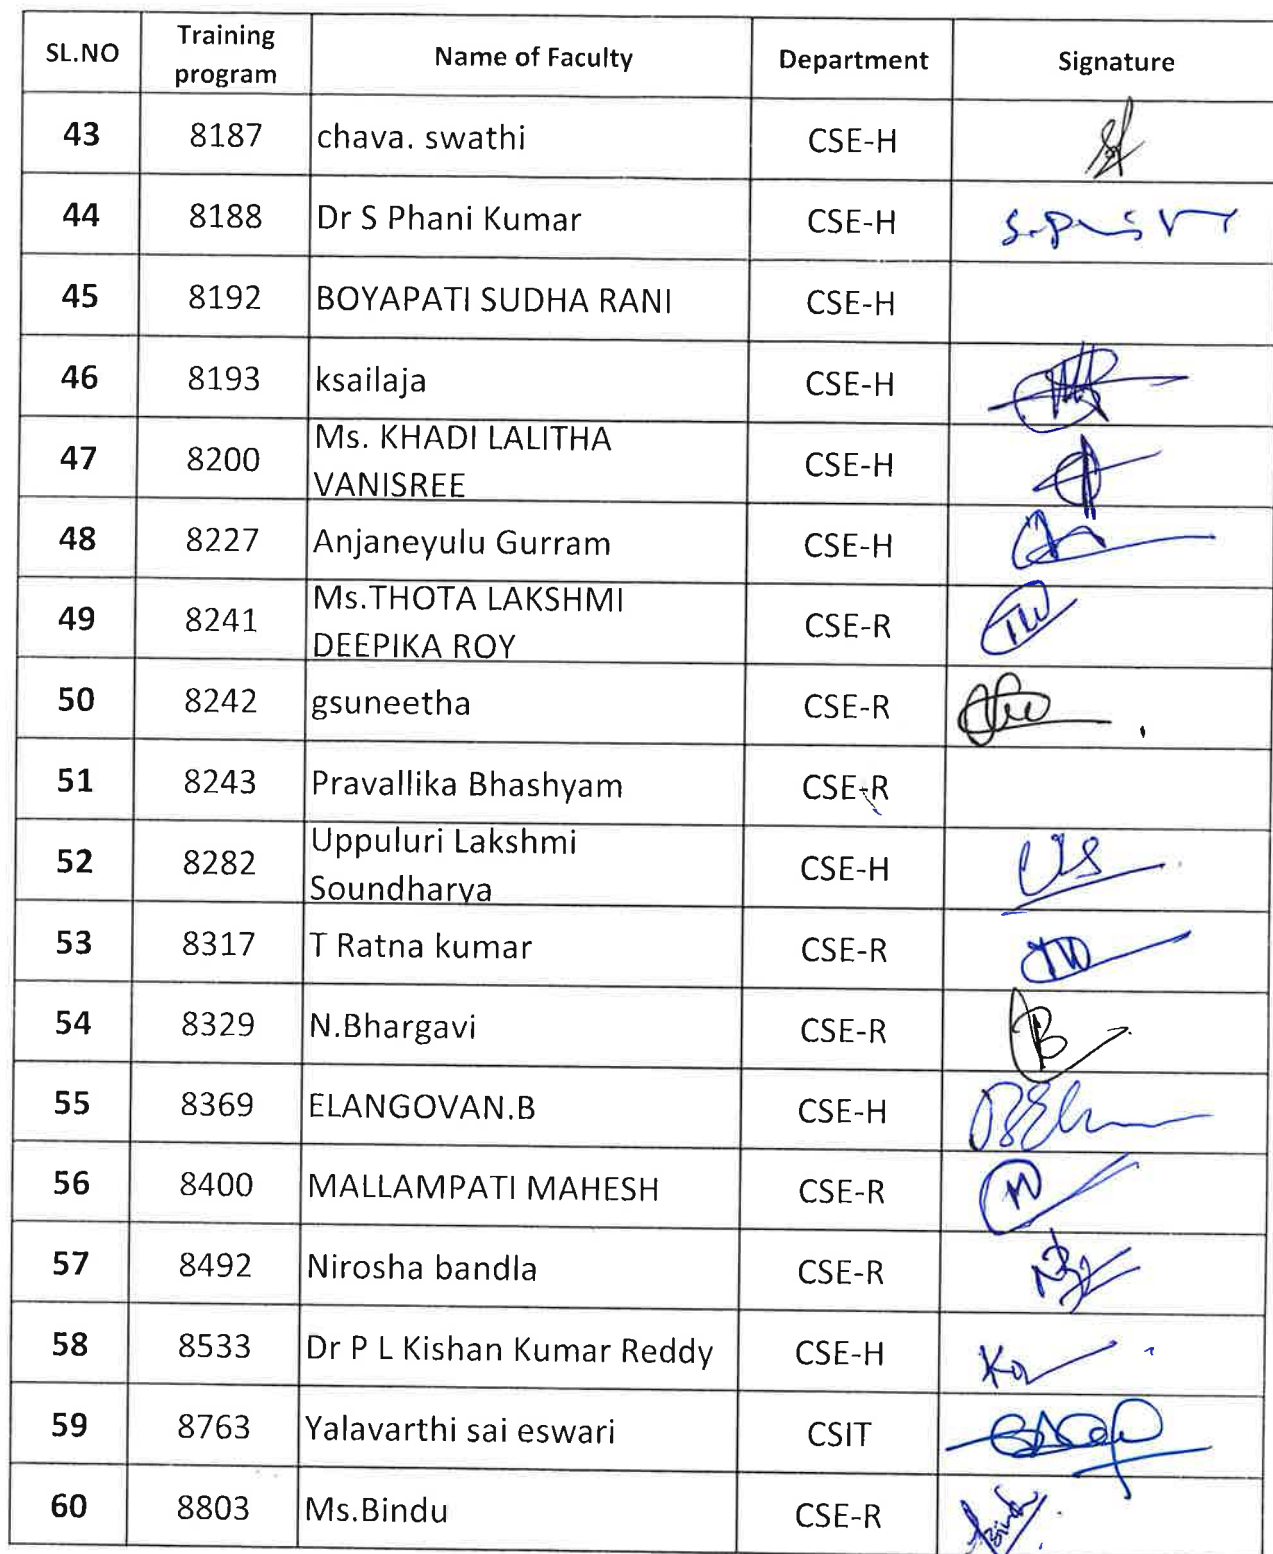 SL.NO Training program Name of Faculty Department Signature
43 8187 chava. swathi CSE-H
44 8188 Dr S Phani Kumar CSE-H
45 8192 BOYAPATI SUDHA RANI CSE-H
46 8193 ksailaja CSE-H
47 8200 Ms. KHADI LALITHA VANISREE CSE-H
48 8227 Anjaneyulu Gurram CSE-H
49 8241 Ms.THOTA LAKSHMI DEEPIKA ROY CSE-R
50 8242 gsuneetha CSE-R
51 8243 Pravallika Bhashyam CSE-R
52 8282 Uppuluri Lakshmi Soundharya CSE-H
53 8317 T Ratna kumar CSE-R
54 8329 N.Bhargavi CSE-R
55 8369 ELANGOVAN.B CSE-H
56 8400 MALLAMPATI MAHESH CSE-R
57 8492 Nirosha bandla CSE-R
58 8533 Dr P L Kishan Kumar Reddy CSE-H
59 8763 Yalavarthi sai eswari CSIT
60 8803 Ms.Bindu CSE-R